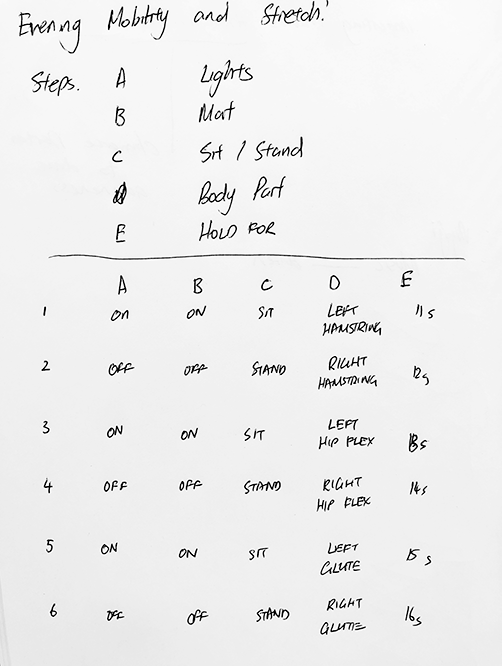 Evening Mobility and Stretch!
Steps. A Lights
B Mat
C Sit / Stand
D Body Part
E HOLD FOR
A B C D E
1 ON ON SIT LEFT HAMSTRING 11s
2 OFF OFF STAND RIGHT HAMSTRING 12s
3 ON ON SIT LEFT HIP FLEX 13s
4 OFF OFF STAND RIGHT HIP FLEX 14s
5 ON ON SIT LEFT GLUTE 15s
6 OFF OFF STAND RIGHT GLUTE 16s